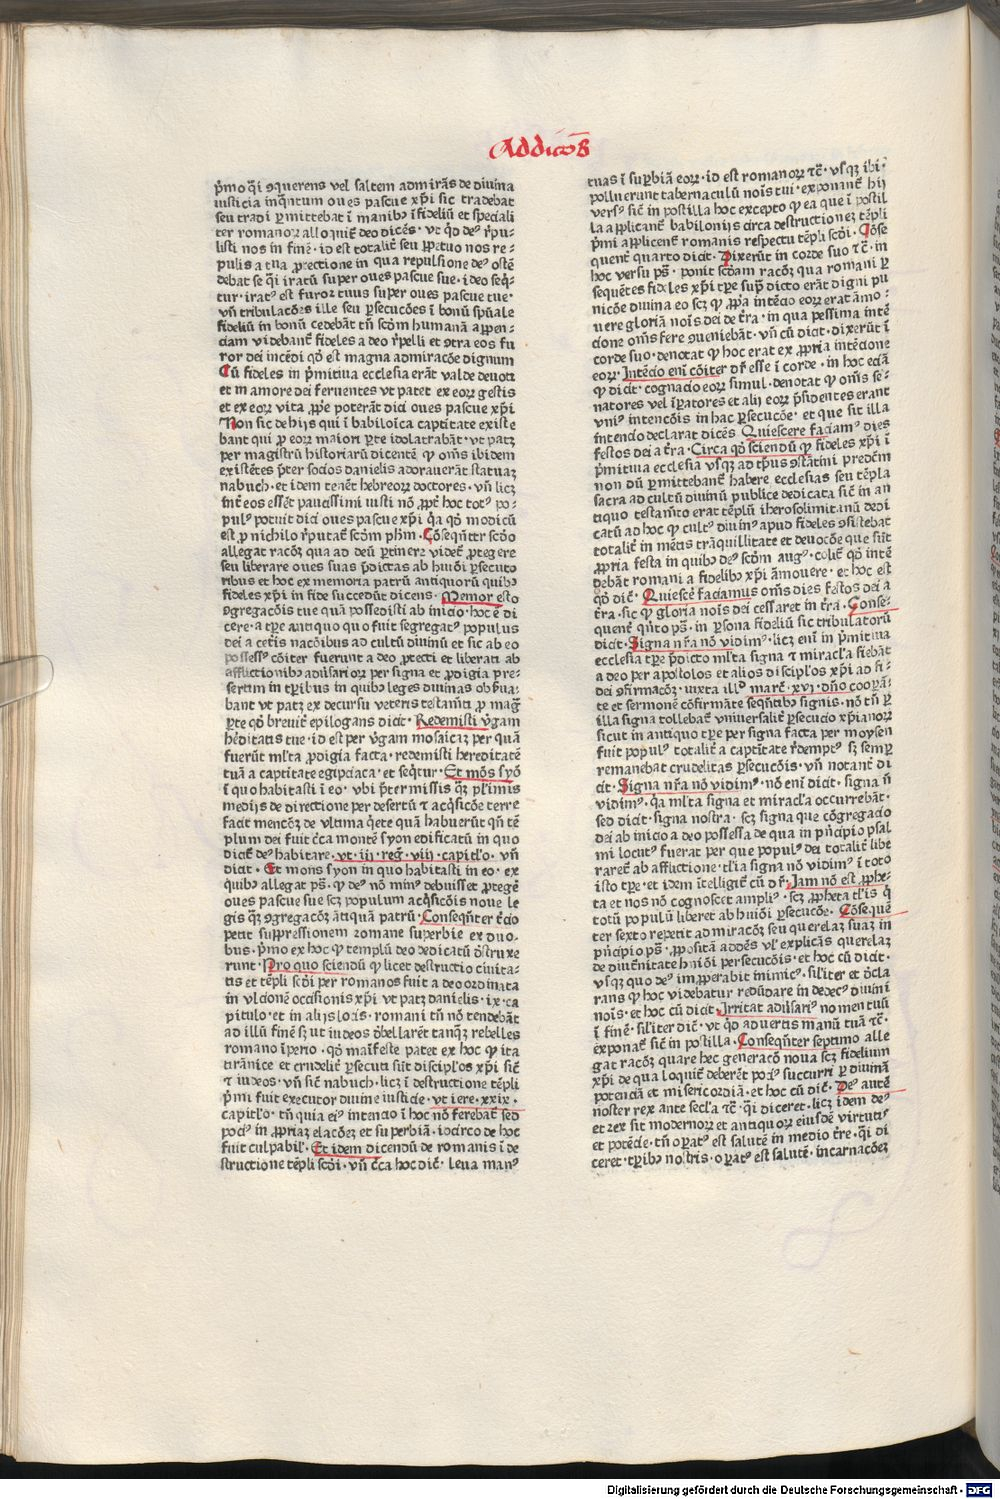 Addicōs
p̄mo q̄i ꝯquerens vel saltem admirās de diuina
iusticia inq̄ntum oues pascue xp̄i sic tradebat
seu tradi ꝑmittebat ī manibꝰ īfideliū et speciali
ter romanoꝝ alloquiẽ deo dicẽs · vt qd deꝰ r̄pu-
listi nos in finē · id est totalit̄ seu ꝑpetuo nos re-
pulis a tua ꝓtectione in qua repulsione deꝰ ostē
debat se q̄i iratū super oues pascue sue · ideo seq̄-
tur · iratꝰ est furor tuus super oues pascue tue ·
vn̄ tribulacōes ille seu ꝑsecucōes ī bonū spūale
fideliū in bonū cedebāt tn̄ scd̄m humanā appen-
ciam videbant̄ fideles a deo r̄pelli et ꝯtra eos fu
ror dei incēdi qd̄ est magna admiracōe dignum
Cū fideles in p̄mitiua ecclesia erāt valde deuoti
et in amore dei feruentes vt patet ex eoꝝ gestis
et ex eoꝝ vita ꝓpe poterāt dici oues pascue xp̄i
Non sic de hijs qui ī babiloīca captitate existe
bant qui ꝓ eoꝝ maiori ꝑte idolatrabāt · vt patꝫ
per magistrū historiarū dicentē ꝙ om̄s ibidem
existētes p̄ter socios danielis adorauerāt statuaꝫ
nabuch · et idem tenēt hebreoꝝ doctores · vn̄ licꝫ
īnt̄ eos essēt paucissimi iusti nō ꝓpt̄ hoc totꝰ po-
pulꝰ potuit dici oues pascue xp̄i q̄a qd̄ modicū
est ꝓ nichilo r̄putat̄ scd̄m ph̄m · Cōseqn̄ter scd̄o
allegat racōꝫ qua ad deū ꝑtinere videt̄ ꝓtegere
seu liberare oues suas p̄dictas ab huiꝰi ꝑsecuto
ribus et hoc ex memoria patrū antiquorū quibꝰ
fideles xp̄i in fide succedūt dicens · Memor esto
ꝯgregacōis tue quā possedisti ab inicio · hoc ē di
cere · a tp̄e antiquo quo fuit segregatꝰ populus
dei a cet̄is nacōibus ad cultū diuinū et sic ab eo
possessꝰ cōiter fuerunt a deo ꝓtecti et liberati ab
afflictionibꝰ aduersarioꝝ per signa et ꝓdigia pre-
sertim in tp̄ibus in quibꝰ leges diuinas obseruā-
bant vt patꝫ ex decursu veteris testamt̄i ꝓ mag̃
ꝑte qd̄ breuit̄ epilogans dicit · Redemisti v̄gam
heditatis tue · id est per v̄gam mosaicaꝫ per quā
fuerūt ml̄ta ꝓdigia facta · redemisti hereditatē
tuā a captitate egipciaca · et seq̄tur · Et mōs syō
ī quo habitasti ī eo · vbi p̄termissis q̄ꝫ pl̄imis
medijs de directione per desertū ⁊ acq̄sicōe terre
facit mencōꝫ de vltima q̄ete quā habuerūt qn̄ tē
plum dei fuit c̄ca montē syon edificatū in quo
dicit̄ deꝰ habitare · vt · iij · reg̃ · viij · capitl̄o · vn̄
dicit · Et mons syon in quo habitasti in eo · ex
quibꝰ allegat ps̄ · ꝙ deꝰ nō minꝰ debuisset ꝓtegē
oues pascue sue scꝫ populum acq̄sicōis noue le
gis q̄ꝫ ꝯgregacōꝫ ātiquā patrū · Conseqn̄ter t̄cio
petit supp̄ssionem romane superbie ex duo-
bus · p̄mo ex hoc ꝙ templū deo dedicatū d̄struxe
runt · Pro quo sciendū ꝙ licet destructio ciuita-
tis et tēpli scd̄i per romanos fuit a deo ordinata
in vlcionē occisionis xp̄i vt patꝫ danielis · ix · ca
pitulo · et in alijs locis · romani tn̄ nō tendebāt
ad illū finē sꝫ ut iudeos d̄bellarēt tanq̄ꝫ rebelles
romano īperio · qd̄ maīfeste patet ex hoc ꝙ ita
tirānice et crudelit̄ ꝑsecuti sūt discipl̄os xp̄i sic̄
⁊ iudeos · vn̄ sic̄ nabuch · licꝫ ī destructione tēpli
p̄mi fuit executor diuine iusticie · vt iere · xxix ·
capitl̄o · tn̄ quia eiꝰ intencio ī hoc nō ferebat̄ sed
pociꝰ in ꝓpriaꝫ elacōeꝫ et superbiā · iccirco de hoc
fuit culpabil̄ · Et idem dicendū de romanis ī de
structione tēpli scd̄i · vn̄ c̄ca hoc dic̄ · leua manꝰ
tuas ī suꝑbiā eoꝝ · id est romanoꝝ ⁊c̄ · vsqꝫ ibi ·
polluerunt tabernaculū noīs tui · exponant̄ hij
versꝰ sic̄ in postilla hoc excepto ꝙ ea que ī postil
la applicant̄ babilonijs circa destructioneꝫ tēpli
p̄mi applicent̄ romanis respectu tēpli scd̄i · Cōse
quent̄ quarto dicit · Dixerūt in corde suo ⁊c̄ · in
hoc versu ps̄ · ponit scd̄am racōꝫ qua romani ꝑ
sequētes fideles xp̄i tp̄e supradicto erāt digni pu
nicōe diuina eo scꝫ ꝙ ꝓpa intēcio eoꝝ erat āmo-
uere gloriā noīs dei de t̄ra · in qua pessima intē
cione om̄s fere ꝯueniebāt · vn̄ cū dicit · dixerūt ī
corde suo · denotat ꝙ hoc erat ex ꝓpria intēcione
eoꝝ · Intēcio enī cōiter dr̄ esse ī corde · in hoc eciā
ꝙ dicit · cognacio eoꝝ simul · denotat ꝙ om̄s se-
natores vel īꝑatores et alij eoꝝ p̄sidentes erant
vniꝰ intencōis in hac ꝑsecucōe · et que sit illa
īntencio declarat dicēs Quiescere faciamꝰ dies
festos dei a t̄ra · Circa qd̄ sciendū ꝙ fideles xp̄i ī
p̄mitiua ecclesia vsqꝫ ad tp̄us ꝯstātini predc̄m
non dū ꝑmittebant̄ habere ecclesias seu tēpla
sacra ad cultū diuinū publice dedicata sic̄ in an
tiquo testam̄to erat tēplū iherosolimitanū dedi
catū ad hoc ꝙ cultꝰ diuinꝰ apud fideles ꝯsistebat
totalit̄ in mētis trāquillitate et deuocōe que sūt
ꝓpria festa in quibꝰ deꝰ scd̄m augꝰ · colit̄ qd̄ intē
debāt romani a fidelibꝰ xp̄i āmouere · et hoc est
qd̄ dic̄ · Quiescē faciamus om̄s dies festos dei a
t̄ra · sic ꝙ gloria noīs dei cessaret in t̄ra · Conse-
quent̄ qn̄to ps̄ · in ꝑsona fideliū sic tribulatorū
dicit · Signa nr̄a nō vidimꝰ · licꝫ enī in p̄mitiua
ecclesia tp̄e p̄dicto ml̄ta signa ⁊ miracl̄a fiebāt
a deo per apostolos et alios discipl̄os xp̄i ad fi-
dei ꝯfirmacōꝫ · iuxta illꝰ marc̄ · xvi · dn̄o coopan̄-
te et sermonē cōfirmāte seqn̄tibꝰ signis · nō tn̄ ꝑ
illa signa tollebat̄ vniuersalit̄ ꝑsecucio xp̄ianoꝝ
sicut in antiquo tp̄e per signa facta per moysen
fuit populꝰ totalit̄ a captītate r̄demptꝰ sꝫ semꝑ
remanebat crudelitas ꝑsecucōis · vn̄ notant̄ di
cit · Signa nr̄a nō vidimꝰ · nō enī dicit · signa n̄
vidimꝰ · q̄a ml̄ta signa et miracl̄a occurrebāt ·
sed dicit · signa nostra · scꝫ signa que cōgregacio
dei ab inicio a deo possessa de qua in pn̄cipio psal
mi locutꝰ fuerat per que populꝰ dei totalit̄ libe
raret̄ ab afflictione · tl̄ia signa nō vidimꝰ ī toto
isto tp̄e · et idem ītelligit̄ cū dr̄ · Jam nō est ꝓphe-
ta et nos nō cognoscet ampliꝰ · scꝫ ꝓpheta tl̄is q̄
totū populū liberet ab huiꝰi ꝑsecucōe · Cōseque
ter sexto repetit admiracōꝫ seu querelaꝫ suaꝫ in
pn̄cipio ps̄ · ꝓpositā addēs vl̄ explicās querelaꝫ
de diut̄nitate huiꝰi persecucōis · et hoc cū dicit ·
vsqꝫ quo deꝰ improperabit inimicꝰ · sil̄iter et d̄cla
rans ꝙ hoc videbatur redūdare in dedecꝰ diuini
noīs · et hoc cū dicit · Irritat aduersariꝰ nomen tuū
ī finē · sil̄iter dic̄ · vt qd̄ aduertis manū tuā ⁊c̄ ·
exponat̄ sic̄ in postilla · Conseqn̄ter septimo alle
gat racōꝫ quare hec generacō noua scꝫ fidelium
xp̄i de qua loquit̄ deberēt pociꝰ succurri ꝑ diuinā
potenciā et misericordiā · et hoc cū dic̄ · Deꝰ autē
noster rex ante secl̄a ⁊c̄ · q̄i diceret · licꝫ idem deꝰ
et rex sit modernoꝝ et antiquoꝝ eiusdē virtutis
et potēcie · tn̄ oꝑatꝰ est salutē in medio t̄re · q̄i di
ceret · tp̄ibꝰ nostris · oꝑatꝰ est salutē · incarnacōeꝫ
Digitalisierung gefördert durch die Deutsche Forschungsgemeinschaft - DFG